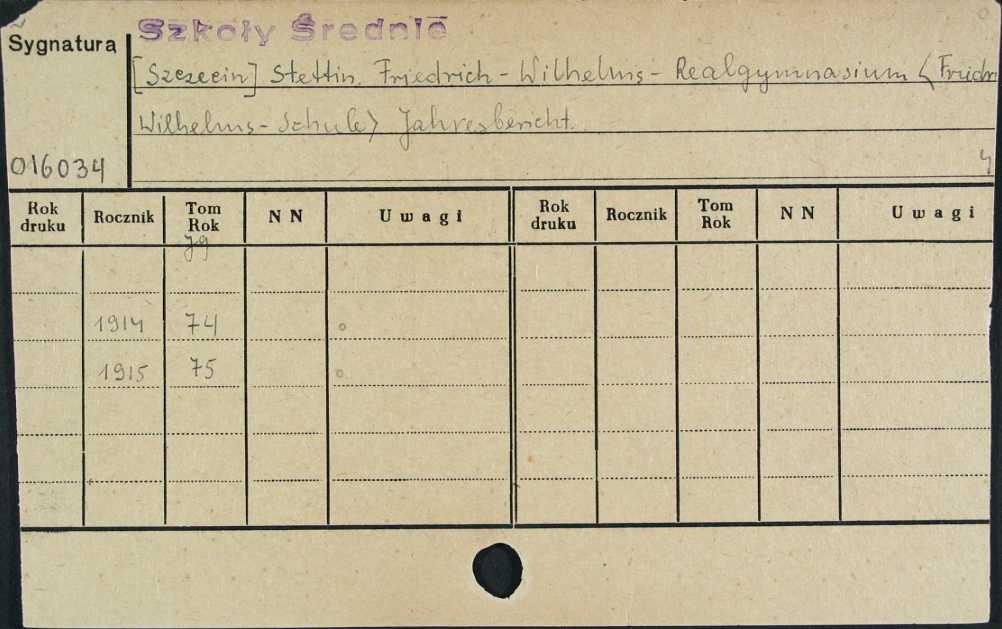 Szkoły Średnie
Sygnatura
[Szczecin] Stettin. Friedrich-Wilhelms-Realgymnasium <Friedr.
Wilhelms-Schule> Jahresbericht.
016034
4
Rok druku Rocznik Tom Rok NN Uwagi Rok druku Rocznik Tom Rok NN Uwagi
Jg
1914 74 o
1915 75 o